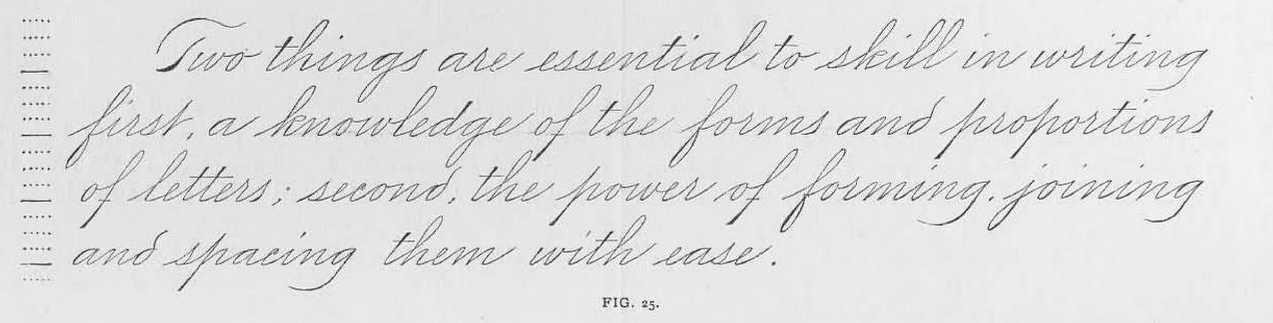 Two things are essential to skill in writing
first, a knowledge of the forms and proportions
of letters; second, the power of forming, joining
and spacing them with ease.
FIG. 25.